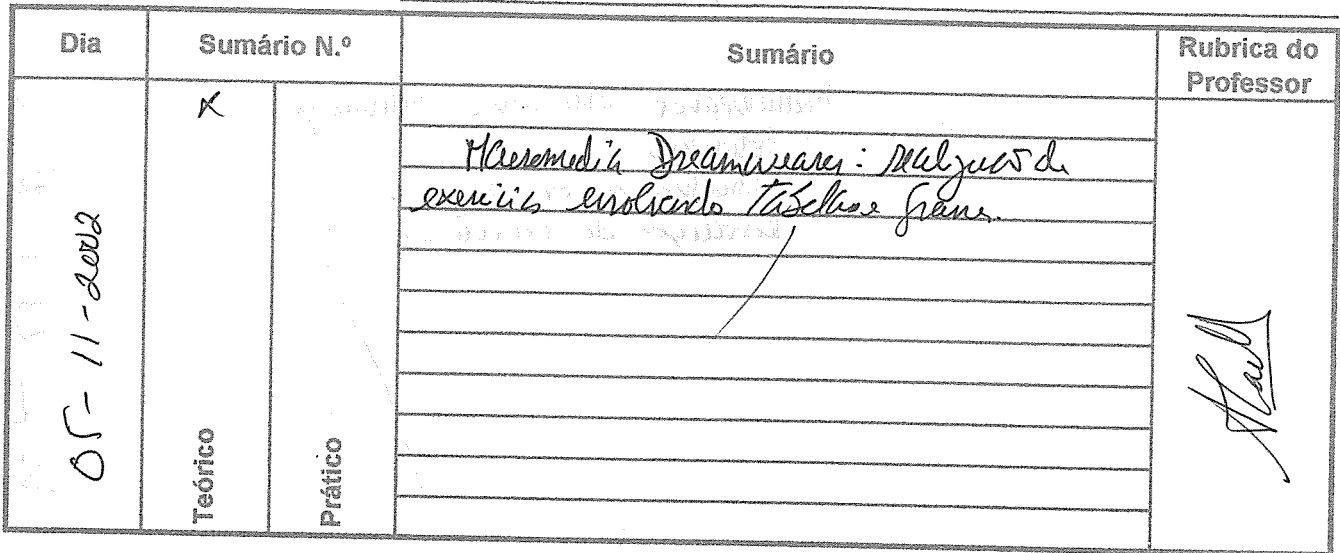 Dia Sumário N.º Sumário Rubrica do
Professor
05-11-2002
X
Teórico
Prático
Macromedia Dreamweaver: realização de
exercícios envolvendo tabelas e frames.